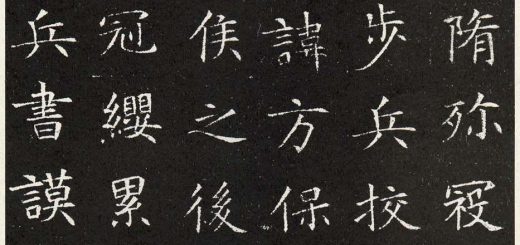 隋殄寇
步兵挍
諱方保
侯之後
冠纓累
兵書謨